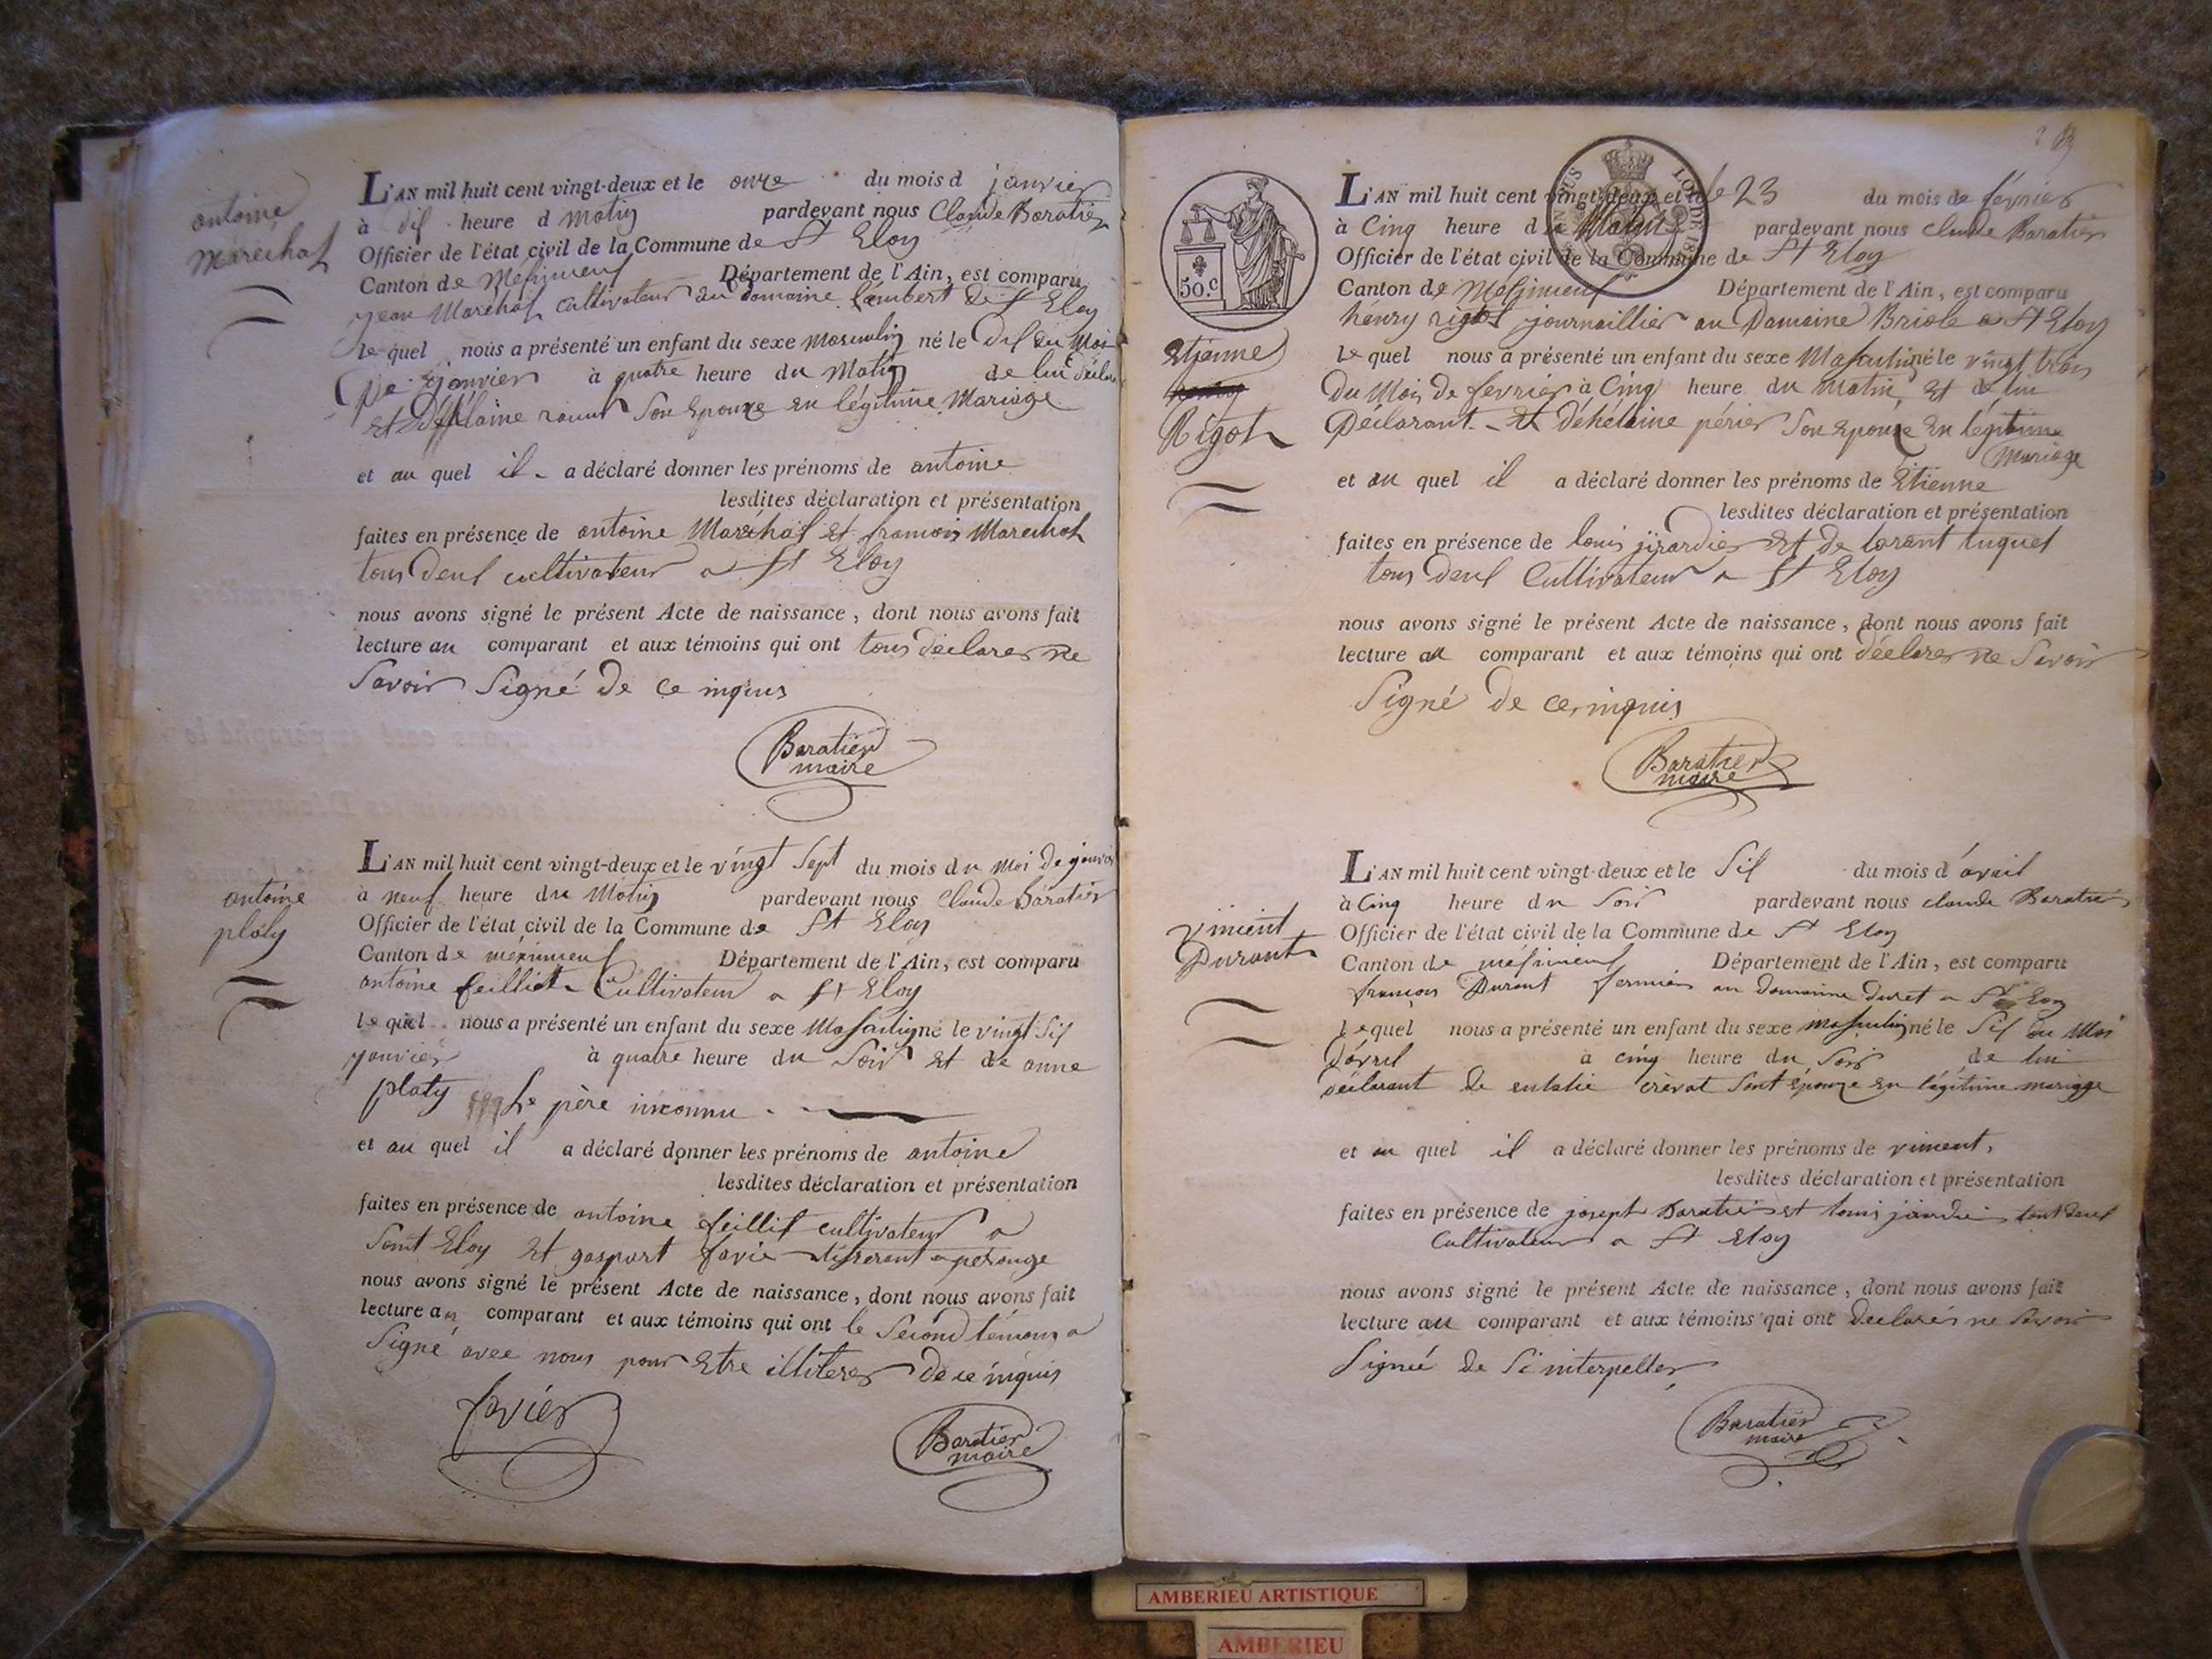 antoine
Maréchal
L'AN mil huit cent vingt-deux et le onze du mois d janvier
à dix heure d Matin pardevant nous Claude Baratier
Officier de l'état civil de la Commune de St Eloy
Canton de Méximieux Département de l'Ain, est comparu
jean Maréchal Cultivateur au domaine lambert de St Eloy
le quel nous a présenté un enfant du sexe Masculin né le dix du Moi
de janvier à quatre heure du Matin de lui déclara
et son Epouse en légitime Mariage
et au quel il a déclaré donner les prénoms de antoine
lesdites déclaration et présentation
faites en présence de antoine Maréchal et francois Marechal
tous deux cultivateur a St Eloy
nous avons signé le présent Acte de naissance, dont nous avons fait
lecture au comparant et aux témoins qui ont tous déclarer ne
Savoir Signé de ce inquis
Baratier
maire
antoine
platy
L'AN mil huit cent vingt-deux et le vingt Sept du mois du Moi de janvier
à neuf heure du Matin pardevant nous Claude Baratier
Officier de l'état civil de la Commune de St Eloy
Canton de méximieux Département de l'Ain, est comparu
antoine feilliet Cultivateur a St Eloy
le quel nous a présenté un enfant du sexe Masculin né le vingt Six
janvier à quatre heure du Soir et de anne
platy Le père inconnu
et au quel il a déclaré donner les prénoms de antoine
lesdites déclaration et présentation
faites en présence de antoine feilliet cultivateur a
Saint Eloy et gaspart favie tisserant a perouge
nous avons signé le présent Acte de naissance, dont nous avons fait
lecture au comparant et aux témoins qui ont le Second témoins a
Signé avec nous pour Etre illiterer de ce inquis
favier
Baratier
maire
50.c
Etienne
Rigot
L'AN mil huit cent vingt-deux et le le 23 du mois de février
à Cinq heure du Matin pardevant nous claude Baratier
Officier de l'état civil de la Commune de St Eloy
Canton de Meximieux Département de l'Ain, est comparu
hénry rigot journaillier au Domaine Briole a St Eloy
le quel nous a présenté un enfant du sexe Masculin né le vingt trois
du Moi de fevrier à Cinq heure du matin et de lui
Déclarant et d'hélaine périer Son Epouse en légitime
Mariage
et au quel il a déclaré donner les prénoms de Etienne
lesdites déclaration et présentation
faites en présence de louis jirardier et de lorant tuquet
tous deux Cultivateur a St Eloy
nous avons signé le présent Acte de naissance, dont nous avons fait
lecture au comparant et aux témoins qui ont déclarer ne Savoir
Signé de ce inquis
Baratier
maire
vincent
Durant
L'AN mil huit cent vingt-deux et le Six du mois d'avril
à Cinq heure du Soir pardevant nous claude Baratier
Officier de l'état civil de la Commune de St Eloy
Canton de meximieux Département de l'Ain, est comparu
françois Durant fermier au domaine duret a St Eloy
le quel nous a présenté un enfant du sexe masculin né le Six du Moi
d'avril à cinq heure du Soir de lui
déclarant de eulalie crévat Sont épouze en légitime mariage
et au quel il a déclaré donner les prénoms de vincent,
lesdites déclaration et présentation
faites en présence de joseph Baratier et louis jirardier tout deux
Cultivateur a St Eloy
nous avons signé le présent Acte de naissance, dont nous avons fait
lecture au comparant et aux témoins qui ont declarés ne Savoir
Signié de Si interpeller
Baratier
maire
AMBERIEU ARTISTIQUE
AMBERIEU